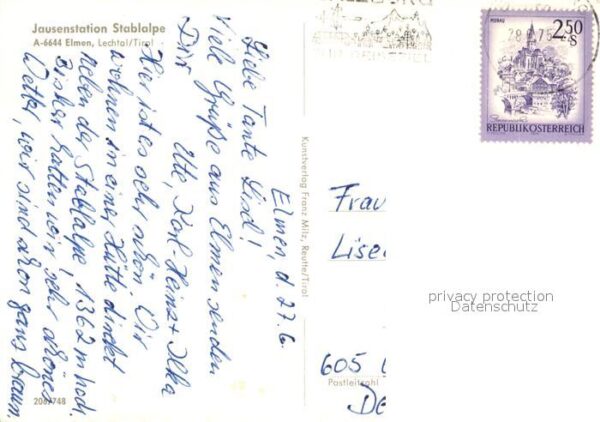 Jausenstation Stablalpe
A-6644 Elmen, Lechtal/Tirol
Elmen, d. 27.6.
Liebe Tante Lisel!
Viele Grüße aus Elmen senden
Dir Ute, Karl-Heinz + Ilka
Hier ist es sehr schön. Wir
wohnen in einer Hütte direkt
neben der Stablalpe, 1362 m hoch.
Bisher hatten wir sehr schönes
Wetter, wir sind schon ganz braun.
208/748
Kunstverlag Franz Milz, Reutte/Tirol
MURAU
2.50
S
REPUBLIK ÖSTERREICH
75
Frau
Lise
privacy protection
Datenschutz
605
Postleitzahl
De